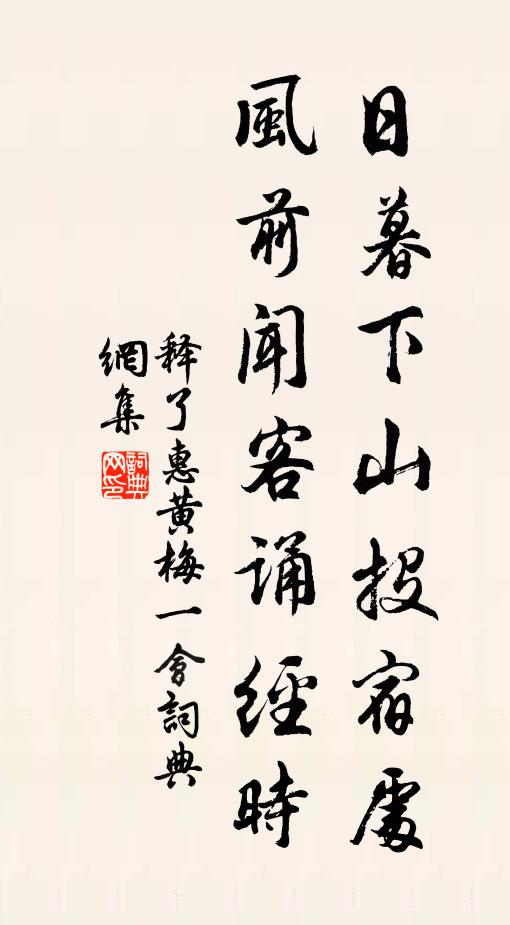 日暮下山投宿處
風前聞客誦經時
释了惠黄梅一會詞典
網集
詞典網印